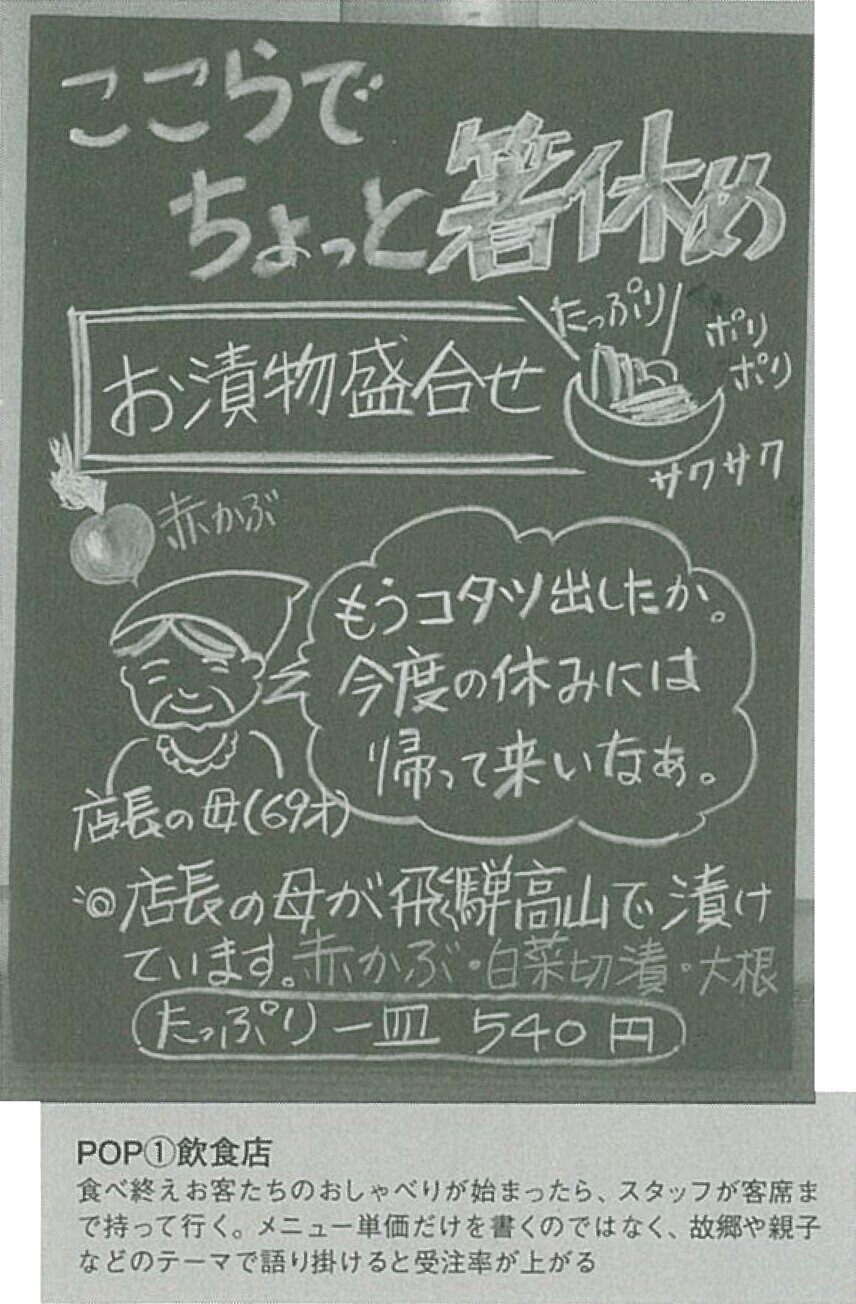 ここらで
ちょっと箸休め
お漬物盛合せ
たっぷり
ポリ
ポリ
サクサク
赤かぶ
もうコタツ出したか。
今度の休みには
帰って来いなぁ。
店長の母(69才)
◎店長の母が飛騨高山で漬け
ています。赤かぶ・白菜切漬・大根
たっぷり一皿 540円
POP①飲食店
食べ終えお客たちのおしゃべりが始まったら、スタッフが客席ま
で持って行く。メニュー単価だけを書くのではなく、故郷や親子
などのテーマで語り掛けると受注率が上がる